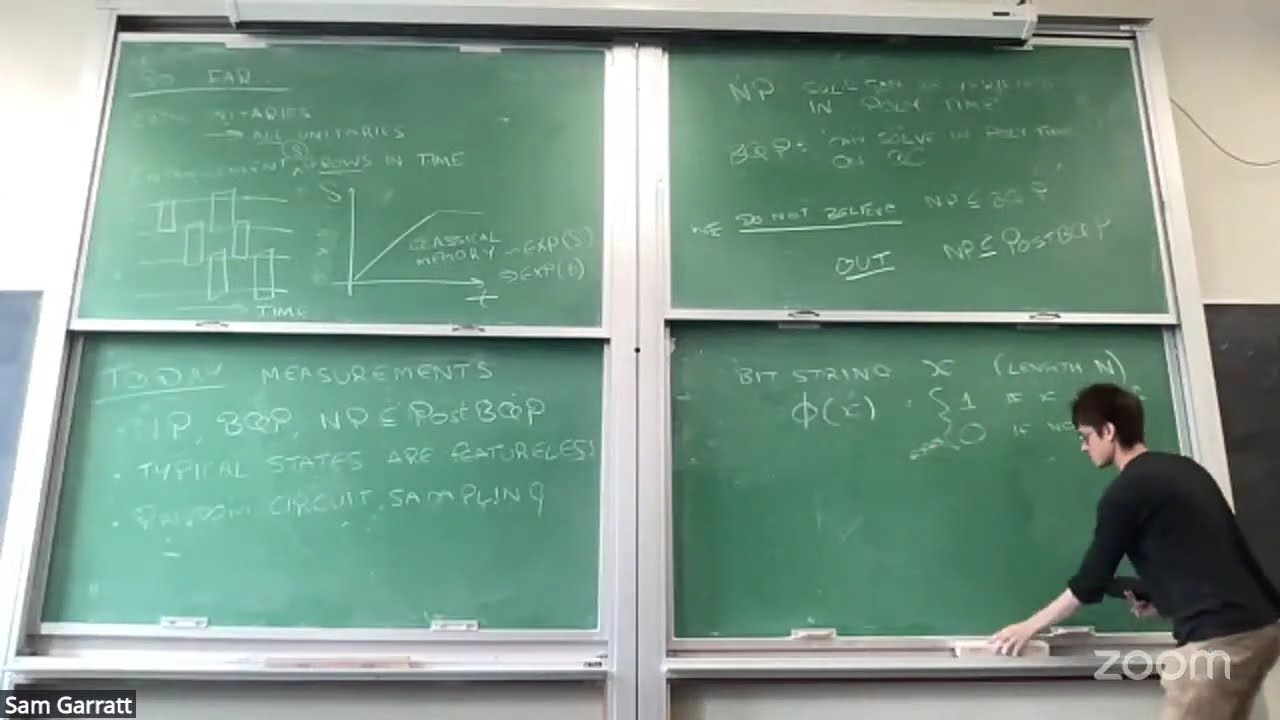 SO FAR...
UNITARIES
→ ALL UNITARIES
ENTANGLEMENT GROWS IN TIME
S
CLASSICAL
MEMORY ~ EXP(S)
⇒ EXP(t)
t
→ TIME
TODAY MEASUREMENTS
· NP, BQP, NP ⊆ PostBQP
· TYPICAL STATES ARE FEATURELESS
· RANDOM CIRCUIT SAMPLING
NP
IN POLY TIME
BQP: CAN SOLVE IN POLY TIME
ON QC
WE DO NOT BELIEVE NP ⊆ BQP
BUT NP ⊆ PostBQP
BIT STRING x (LENGTH N)
ϕ(x) : { 1 IF x
0 IF
zoom
Sam Garratt